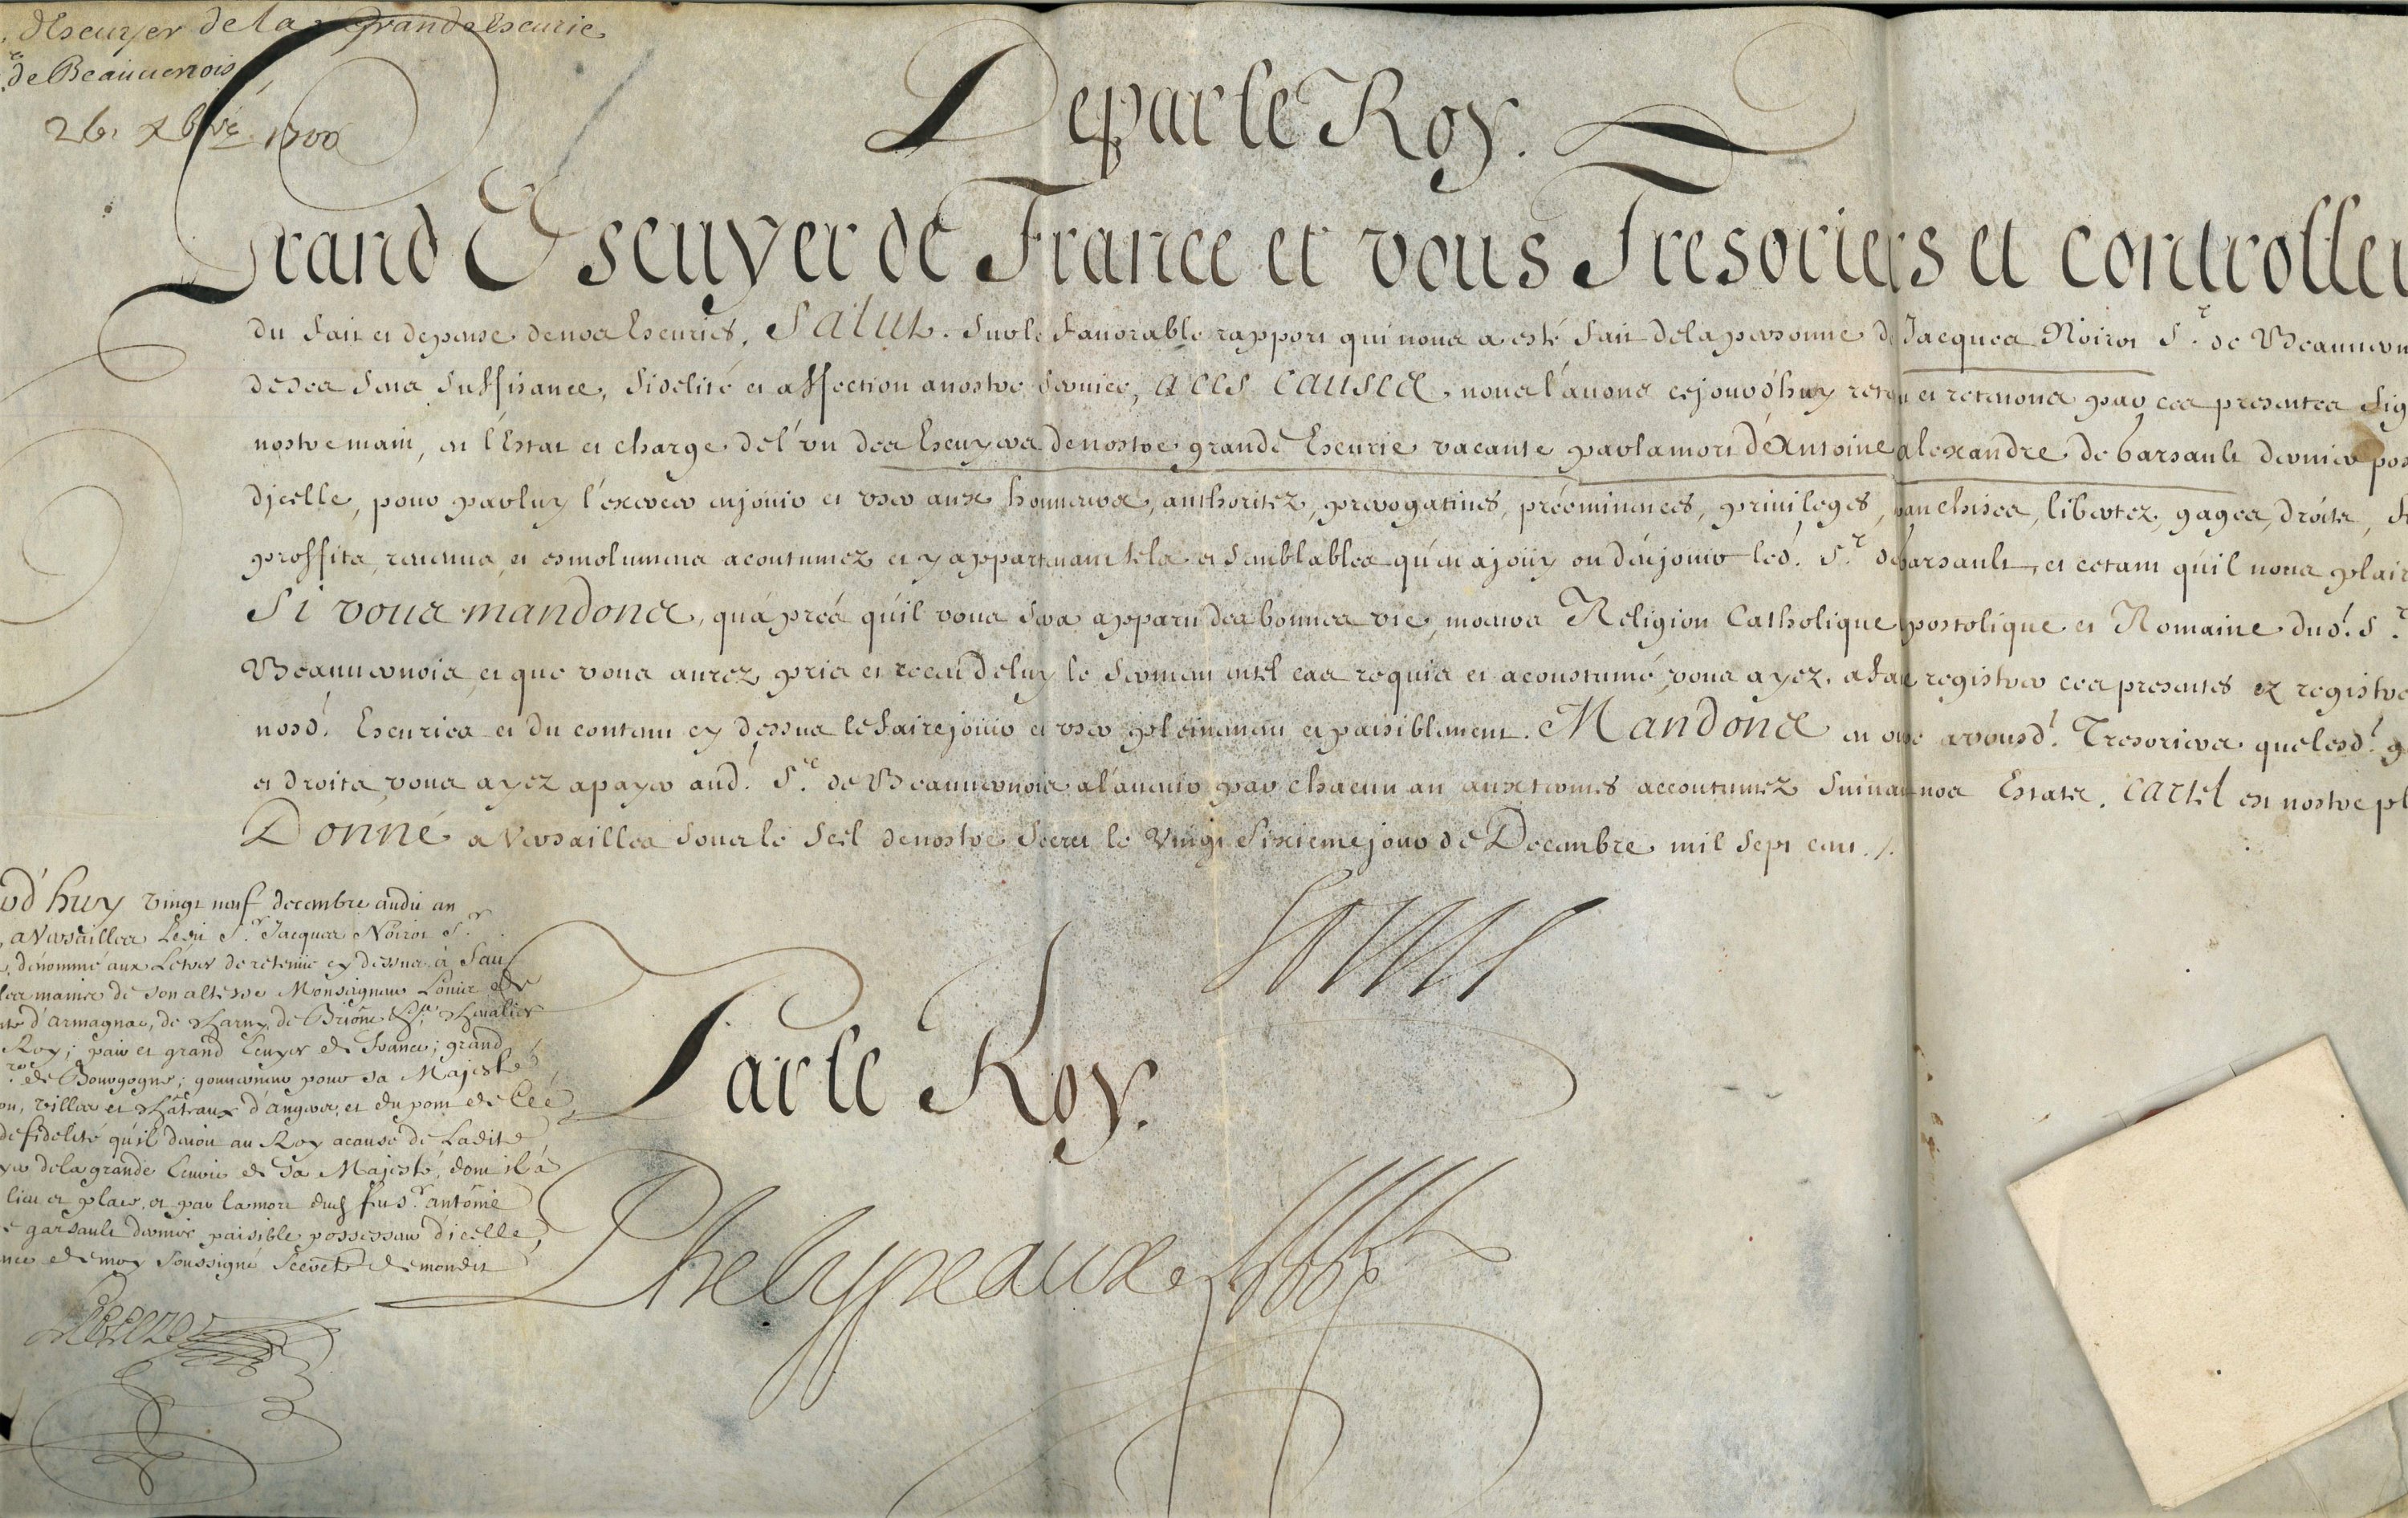 d'Escuyer de la grande Escurie
de Beauuernois
26. Xbre. 1700
De par le Roy.
Grand Escuyer de France et vous Tresoriers et controlleu
du fait et depense de nos Escuries, Salut. Sur le fauorable rapport qui nous a esté fait de la personne de Jacques Noirot Sr. de Beauuern
de ses sens suffisance, fidelité et affection a nostre seruice, A ces causes, nous l'auons ce jourd'huy retenu et retenons par ces presentes sig
nostre main, en l'Estat et charge de l'un des Escuyers de nostre grande Escurie vacante par la mort d'Antoine alexandre de Garsault dernier pos
d'jcelle, pour par luy l'exercer en jouir et vser aux honneurs, authoritez, prerogatiues, prééminences, priuileges, franchises, libertez, gages, droits,
proffits, reuenus, et esmolumens acoutumez et y appartenans tels et semblables qu'en a joüy ou dû jouir led. Sr. de garsault, et ce tant qu'il nous plair
Si vous mandons, qu'aprés qu'il vous sera apparu des bonnes vie, moeurs Religion Catholique apostolique et Romaine dud. Sr.
Beauuernois, et que vous aurez pris et receu de luy le serment en tel cas requis et acoustumé, vous ayez a faire registrer ces presentes ez registre
nosd. Escuries et du contenu cy dessus le faire jouir et vser pleinement et paisiblement. Mandons en outre a vousd. Tresoriers que lesd. g
et droits, vous ayez a payer aud. Sr. de Beauuernois a l'auenir par chacun an aux termes accoutumez suiuant nos Estats. Car tel est nostre pl
Donné a Versailles sous le Scel de nostre Secret le vingt Sixieme jour de Decembre mil sept cent./.
urd'huy vingt neuf decembre audit an
a Versailles Ledit Sr. Jacques Noirot Sr.
dénommé aux Lettres de retenüe cy dessus à fait
les mains de son altesse Monseigneur Loüis de
te d'armagnac, de Charny, de Brione &c. Cheualier
Roy; pair et grand Ecuyer de France; grand
de Bourgogne; gouuerneur pour sa Majesté
ou, villes et Châteaux d'angers, et du pont de Cée,
de fidelité qu'il deuoit au Roy a cause de Ladite
yer de la grande Ecurie de Sa Majesté, dont il à
lieu et place, et par la mort du feu Sr. antoine
e garsault dernier paisible possesseur d'icelle,
nce de moy soussigné Secret.re de mondit
Louis
Par le Roy.
Phelypeaux